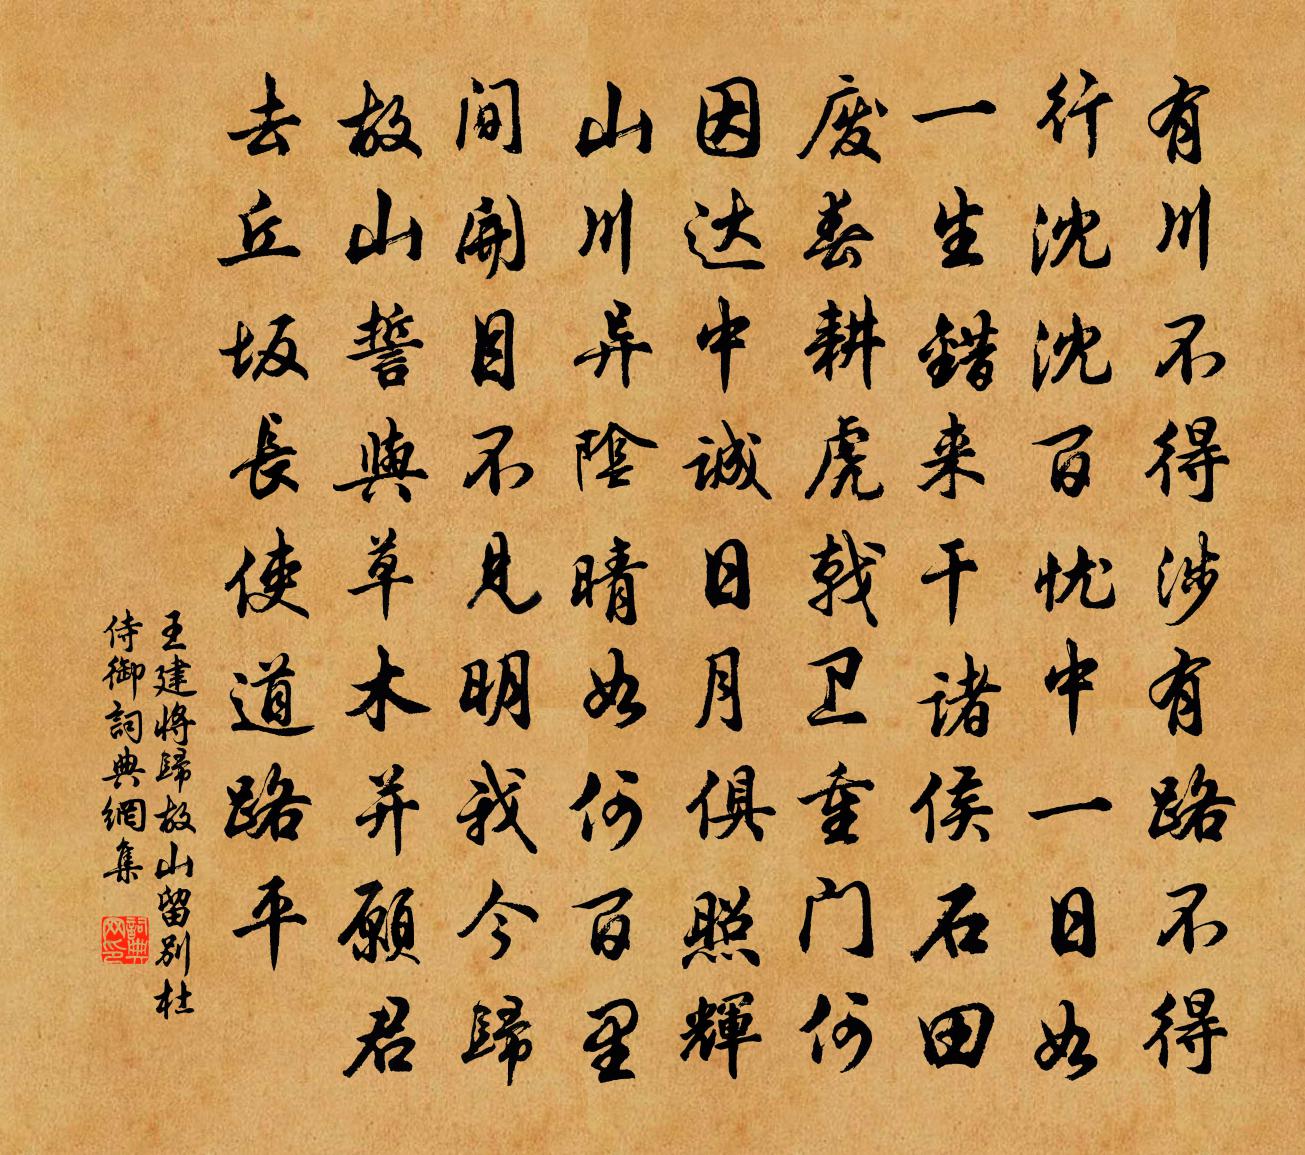 有川不得涉有路不得
行沈沈百忧中一日如
一生錯来干諸侯石田
废春耕虎戟卫重门何
因达中誠日月俱照輝
山川异陰晴如何百里
间開目不見明我今歸
故山誓與草木并願君
去丘坂長使道路平
王建將歸故山留别杜
侍御詞典網集
詞典网印